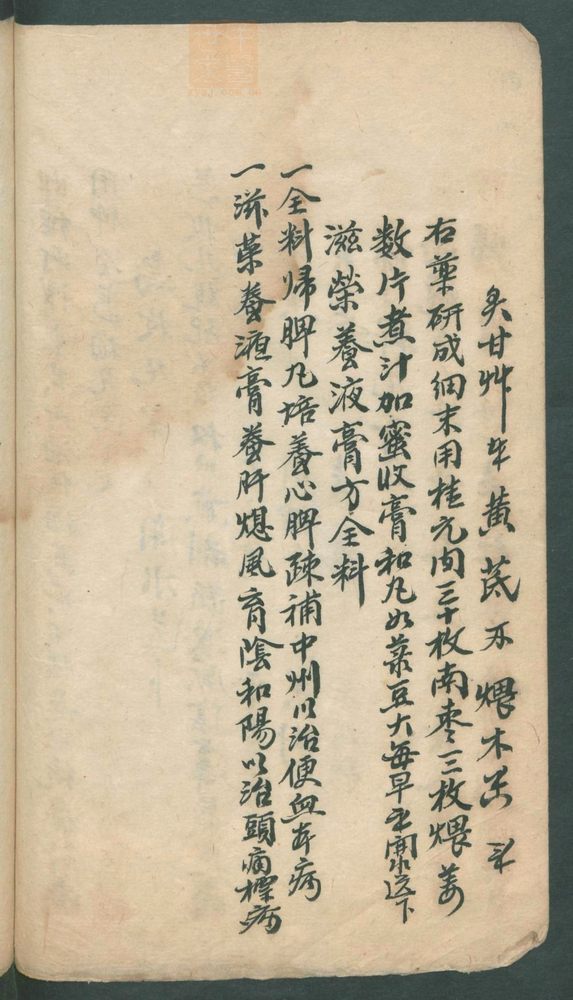 炙甘艸 黄芪 煨木香
右藥研成細末用桂元肉三十枚南枣三枚煨姜
数片煮汁加蜜收膏和丸如菉豆大每早 開水送下
滋荣養液膏方全料
一全料帰脾丸培養心脾疎補中州以治便血本病
一滋荣養液膏養肝熄風育陰和陽以治頭痛標病